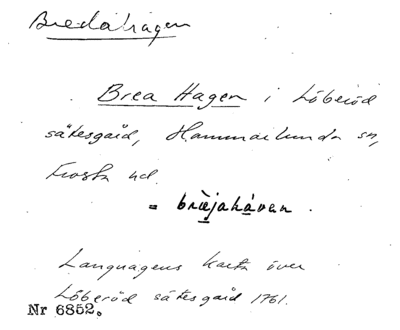 Bredahagen
Brea Hagen i Löberöd
sätesgård, Hammarlunda sn,
Frosta hd.
= bræ̀jahávan.
Languagens karta över
Löberöd sätesgård 1761.
Nr 6852.